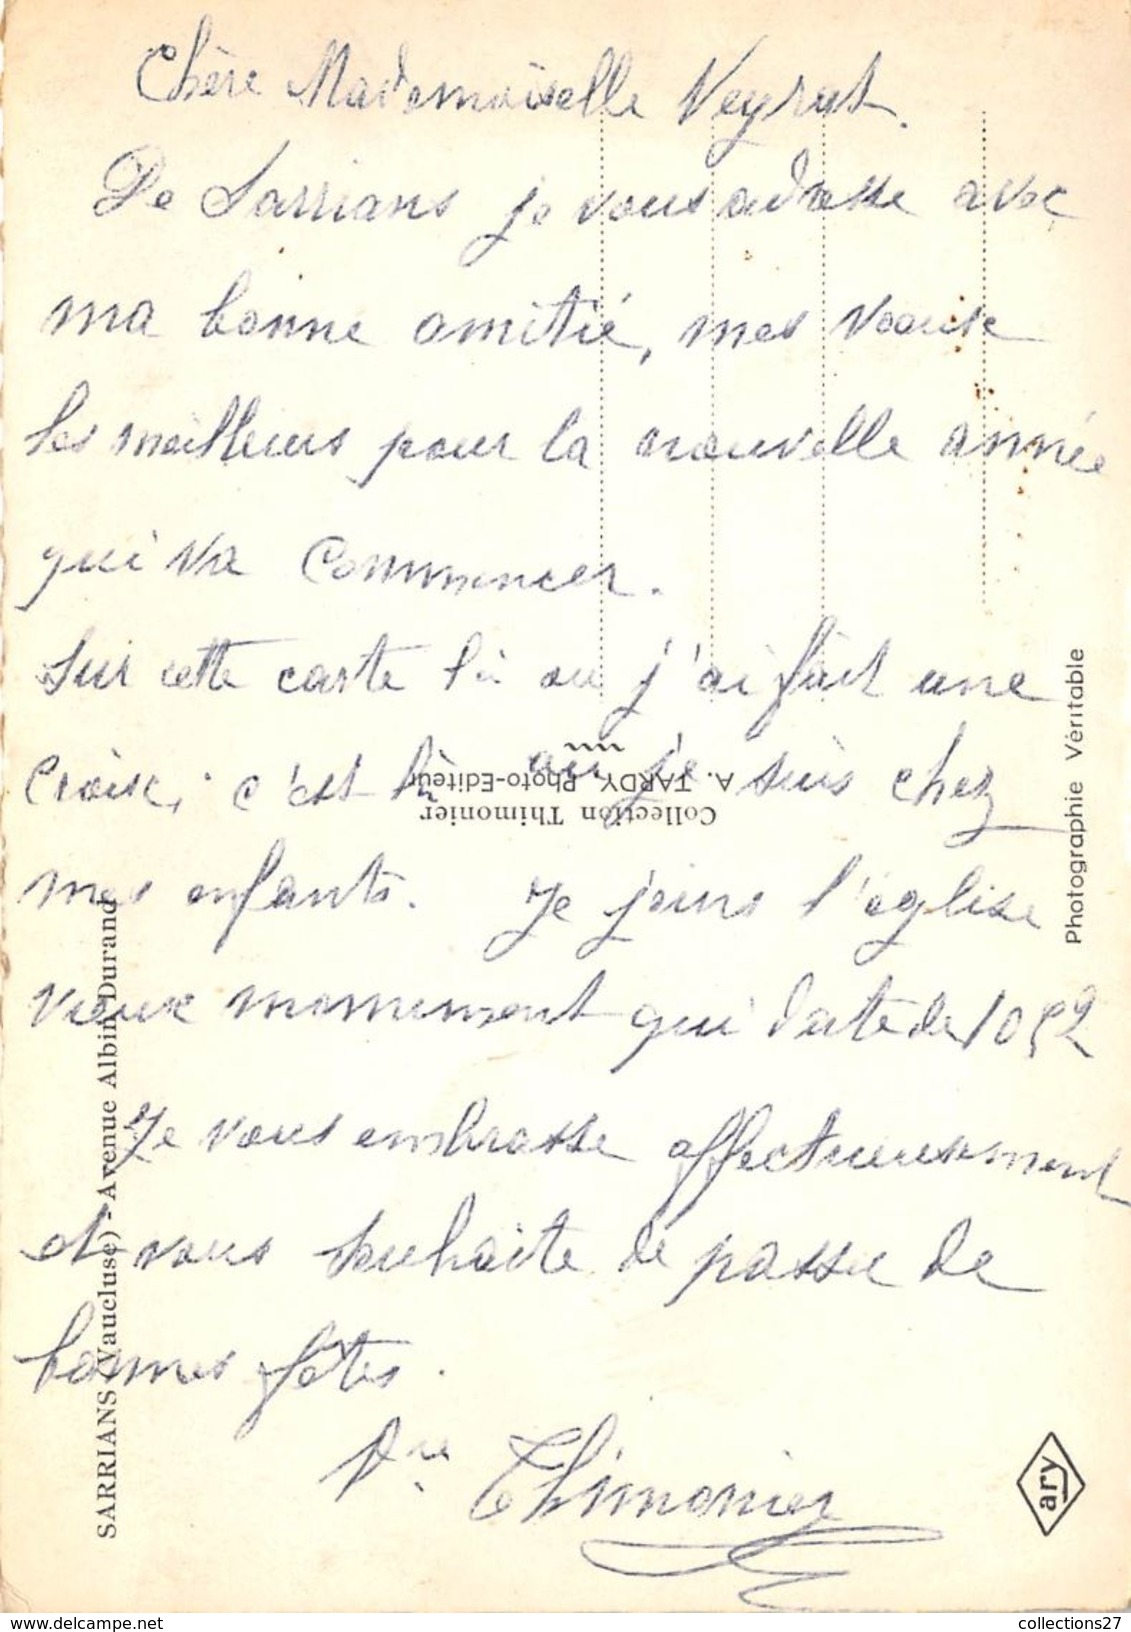 Chère Mademoiselle Veyrat.
De Sarrians je vous adresse avec
ma bonne amitié, mes voeux
les meilleurs pour la nouvelle année
qui va commencer.
Sur cette carte là ou j'ai fait une
Croix, c'est là ou je suis chez
mes enfants. Je joins l'église
vieux monument qui date de 1052
Je vous embrasse affectueusement
et vous souhaite de passer de
bonnes fêtes.
Thimonier
SARRIANS (Vaucluse) - Avenue Albin Durand
Collection Thimonier
A. TARDY, Photo-Editeur
Photographie Véritable
ary
www.delcampe.net
collections27